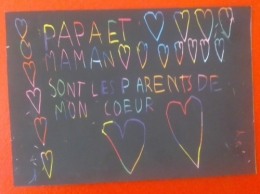 PAPA ET
MAMAN
SONT LES PARENTS DE
MON COEUR